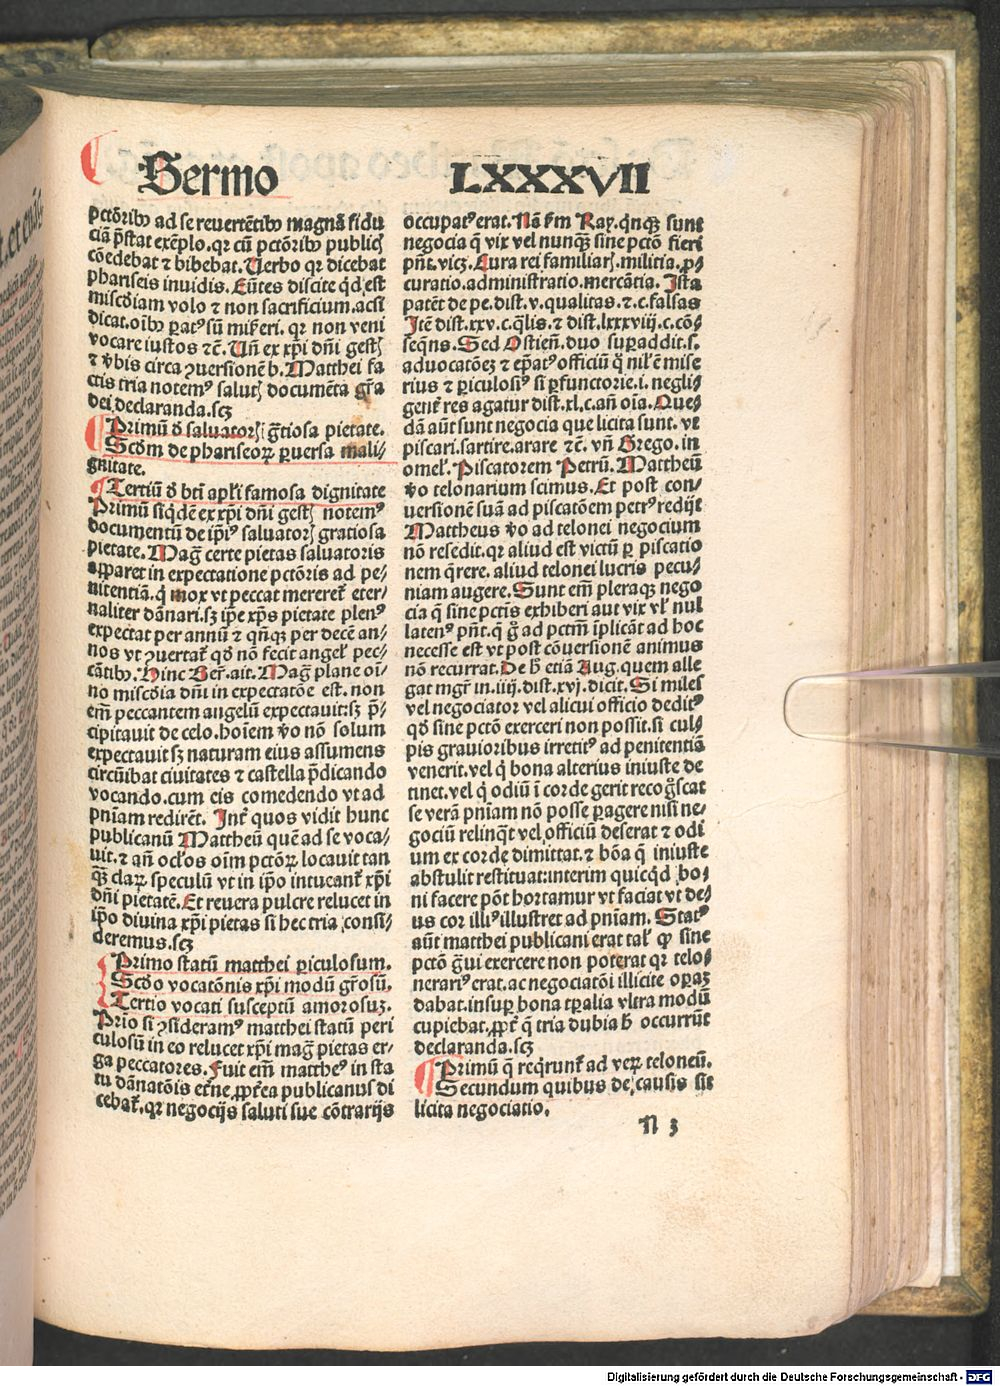 Sermo LXXXVII
pctōribꝰ ad se reuertētibꝰ magnā fidu
ciā p̄stat exēplo. qr cū pctōribꝰ publicꝭ
cōedebat ⁊ bibebat. Uerbo qr dicebat
phariseis inuidis. Eūtes discite qd̄ est
misc̄diam volo ⁊ non sacrificium. acsi
dicat. oībꝰ ꝑatꝰ sū miẜeri. qr non veni
vocare iustos ⁊c̄. Un̄ ex xp̄i dn̄i gestꝭ
⁊ v̄bis circa ꝯuersionē b. Matthei fa
ctis tria notemꝰ salutꝭ documēta gr̄a
dei declaranda. scꝫ
Primū ō saluatorꝭ gr̄tiosa pietate.
Scd̄m de phariseoꝝ ꝑuersa mali⸗
gnitate.
Tertiū ō bt̄i apl̄i famosa dignitate
Primū siqdē ex xp̄i dn̄i gestꝭ notemꝰ
documentū de ip̄iꝰ saluatorꝭ gratiosa
pietate. Maḡ certe pietas saluatoris
apparet in expectatione pctōris ad pe⸗
nitentiā. q̇ mox vt peccat mereret̄ eter⸗
naliter dānari. sꝫ ip̄e xp̄s pietate plenꝰ
expectat per annū ⁊ qn̄qꝫ per decē an⸗
nos vt ꝯuertat̄ qd̄ nō fecit angel̄ pec⸗
cātibꝰ. Hinc Ber̄. ait. Maḡ plane oī⸗
no misc̄dia dn̄i in expectatōe est. non
em̄ peccantem angelū expectauit: sꝫ p̄⸗
cipitauit de celo. hoīem v̄o nō solum
expectauit sꝫ naturam eius assumens
circūibat ciuitates ⁊ castella p̄dicando
vocando. cum eis comedendo vt ad
pn̄iam redirēt. Int̄ quos vidit hunc
publicanū Mattheū quē ad se voca⸗
uit. ⁊ an̄ ocl̄os oīm pctōꝝ locauit tan
qꝫ claꝝ speculū vt in ip̄o intueant̄ xp̄i
dn̄i pietatē. Et reuera pulcre relucet in
ip̄o diuina xp̄i pietas si hec tria consi⸗
deremus. scꝫ
Primo statū matthei ꝑiculosum.
Scd̄o vocatōnis xp̄i modū gr̄osū.
Tertio vocati susceptū amorosuꝫ.
Prīo si ꝯsideramꝰ matthei statū peri
culosū in eo relucet xp̄i maḡ pietas er⸗
ga peccatores. Fuit em̄ mattheꝰ in sta
tu dānatōis et̄ne. ꝓpt̄ea publicanus di
cebat̄. qr negocijs saluti sue cōtrarijs
occupatꝰ erat. Nā fm̄ Ray. qn̄qꝫ sunt
negocia q̄ vix vel nunqꝫ sine pctō fieri
pn̄t. vicꝫ. Cura rei familiarꝭ. militia. ꝓ⸗
curatio. administratio. mercātia. Ista
patēt de pe. dist. v. qualitas. ⁊. c. falsas
Itē dist. xxv. c. q̄lis. ⁊ dist. lxxxviij. c. cō⸗
seqn̄s. Sed Ostien̄. duo suꝑaddit. s.
aduocatōeꝫ ⁊ ep̄atꝰ officiū q̇ nil̄ē mise
rius ⁊ ꝑiculosiꝰ si ꝑfunctorie. i. negli⸗
gent̄ res agatur dist. xl. c. an̄ oīa. Que⸗
dā aūt sunt negocia que licita sunt. vt
piscari. sartire. arare ⁊c̄. vn̄ Grego. in
omel̄. Piscatorem Petrū. Mattheū
v̄o telonarium scimus. Et post con⸗
uersionē suā ad piscatōem petrꝰ redijt
Mattheus v̄o ad telonei negocium
nō resedit. qr aliud est victū ꝑ piscatio
nem q̄rere. aliud telonei lucris pecu⸗
niam augere. Sunt em̄ pleraqꝫ nego
cia q̄ sine pctis exhiberi aut vix vl̄ nul
latenꝰ pn̄t. q̄ g̊ ad pctm̄ īplicāt ad hoc
necesse est vt post cōuersionē animus
nō recurrat. De h̄ etiā Aug. quem alle
gat mgr̄ in. iiij. dist. xvj. dicit. Si miles
vel negociator vel alicui officio deditꝰ
qd̄ sine pctō exerceri non possit. si cul⸗
pis grauioribus irretitꝰ ad penitentiā
venerit. vel q̇ bona alterius iniuste de
tinet. vel q̇ odiū ī corde gerit recog̊scat
se verā pn̄iam nō posse ꝑagere nisi ne⸗
gociū relinqt̄ vel officiū deserat ⁊ odi
um ex corde dimittat. ⁊ bōa q̄ iniuste
abstulit restituat: interim quicqd̄ bo⸗
ni facere pōt hortamur vt faciat vt de⸗
us cor illiꝰ illustret ad pn̄iam. Statꝰ
aūt matthei publicani erat tal̄ ꝙ sine
pctō g̊ui exercere non poterat qr telo⸗
nerariꝰ erat. ac negociatōi illicite oꝑaꝫ
dabat. insuꝑ bona tꝑalia vltra modū
cupiebat. ꝓpt̄ q̄ tria dubia h̄ occurrūt
declaranda. scꝫ
Primū q̄ reqrunt̄ ad veꝝ teloneū.
Secundum quibus de causis sit
licita negociatio.
N 3
Digitalisierung gefördert durch die Deutsche Forschungsgemeinschaft - DFG